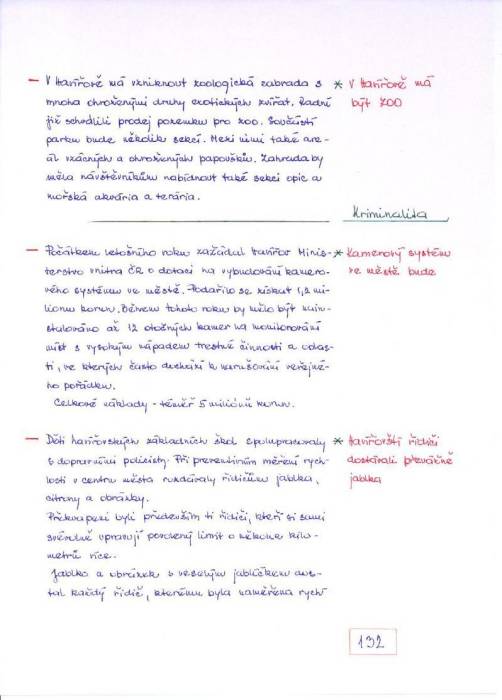 – V Havířově má vzniknout zoologická zahrada s
mnoha ohroženými druhy exotických zvířat. Radní
již schválili prodej pozemku pro zoo. Součástí
parku bude několik sekcí. Mezi nimi také are-
ál vzácných a ohrožených papoušků. Zahrada by
měla návštěvníkům nabídnout také sekci opic a
mořská akvária a terária.
* V Havířově má
být ZOO
Kriminalita
– Počátkem letošního roku zažádal Havířov Minis-
terstvo vnitra ČR o dotaci na vybudování kamero-
vého systému ve městě. Podařilo se získat 1,2 mi-
lionu korun. Během tohoto roku by mělo být nain-
stalováno až 12 otočných kamer na monitorování
míst s vysokým nápadem trestné činnosti a oblas-
tí, ve kterých často dochází k narušování veřejné-
ho pořádku.
Celkové náklady - téměř 5 miliónů korun.
* Kamerový systém
ve městě bude
– Děti havířovských základních škol spolupracovaly
s dopravními policisty. Při preventivním měření rych-
losti v centru města rozdávaly řidičům jablka,
citrony a obrázky.
Překvapeni byli především ti řidiči, kteří si sami
svévolně upravují povolený limit o několik kilo-
metrů více.
Jablko a obrázek s veselým jablíčkem dos-
tal každý řidič, kterému byla naměřena rych
* Havířovští řidiči
dostávali převážně
jablka
132